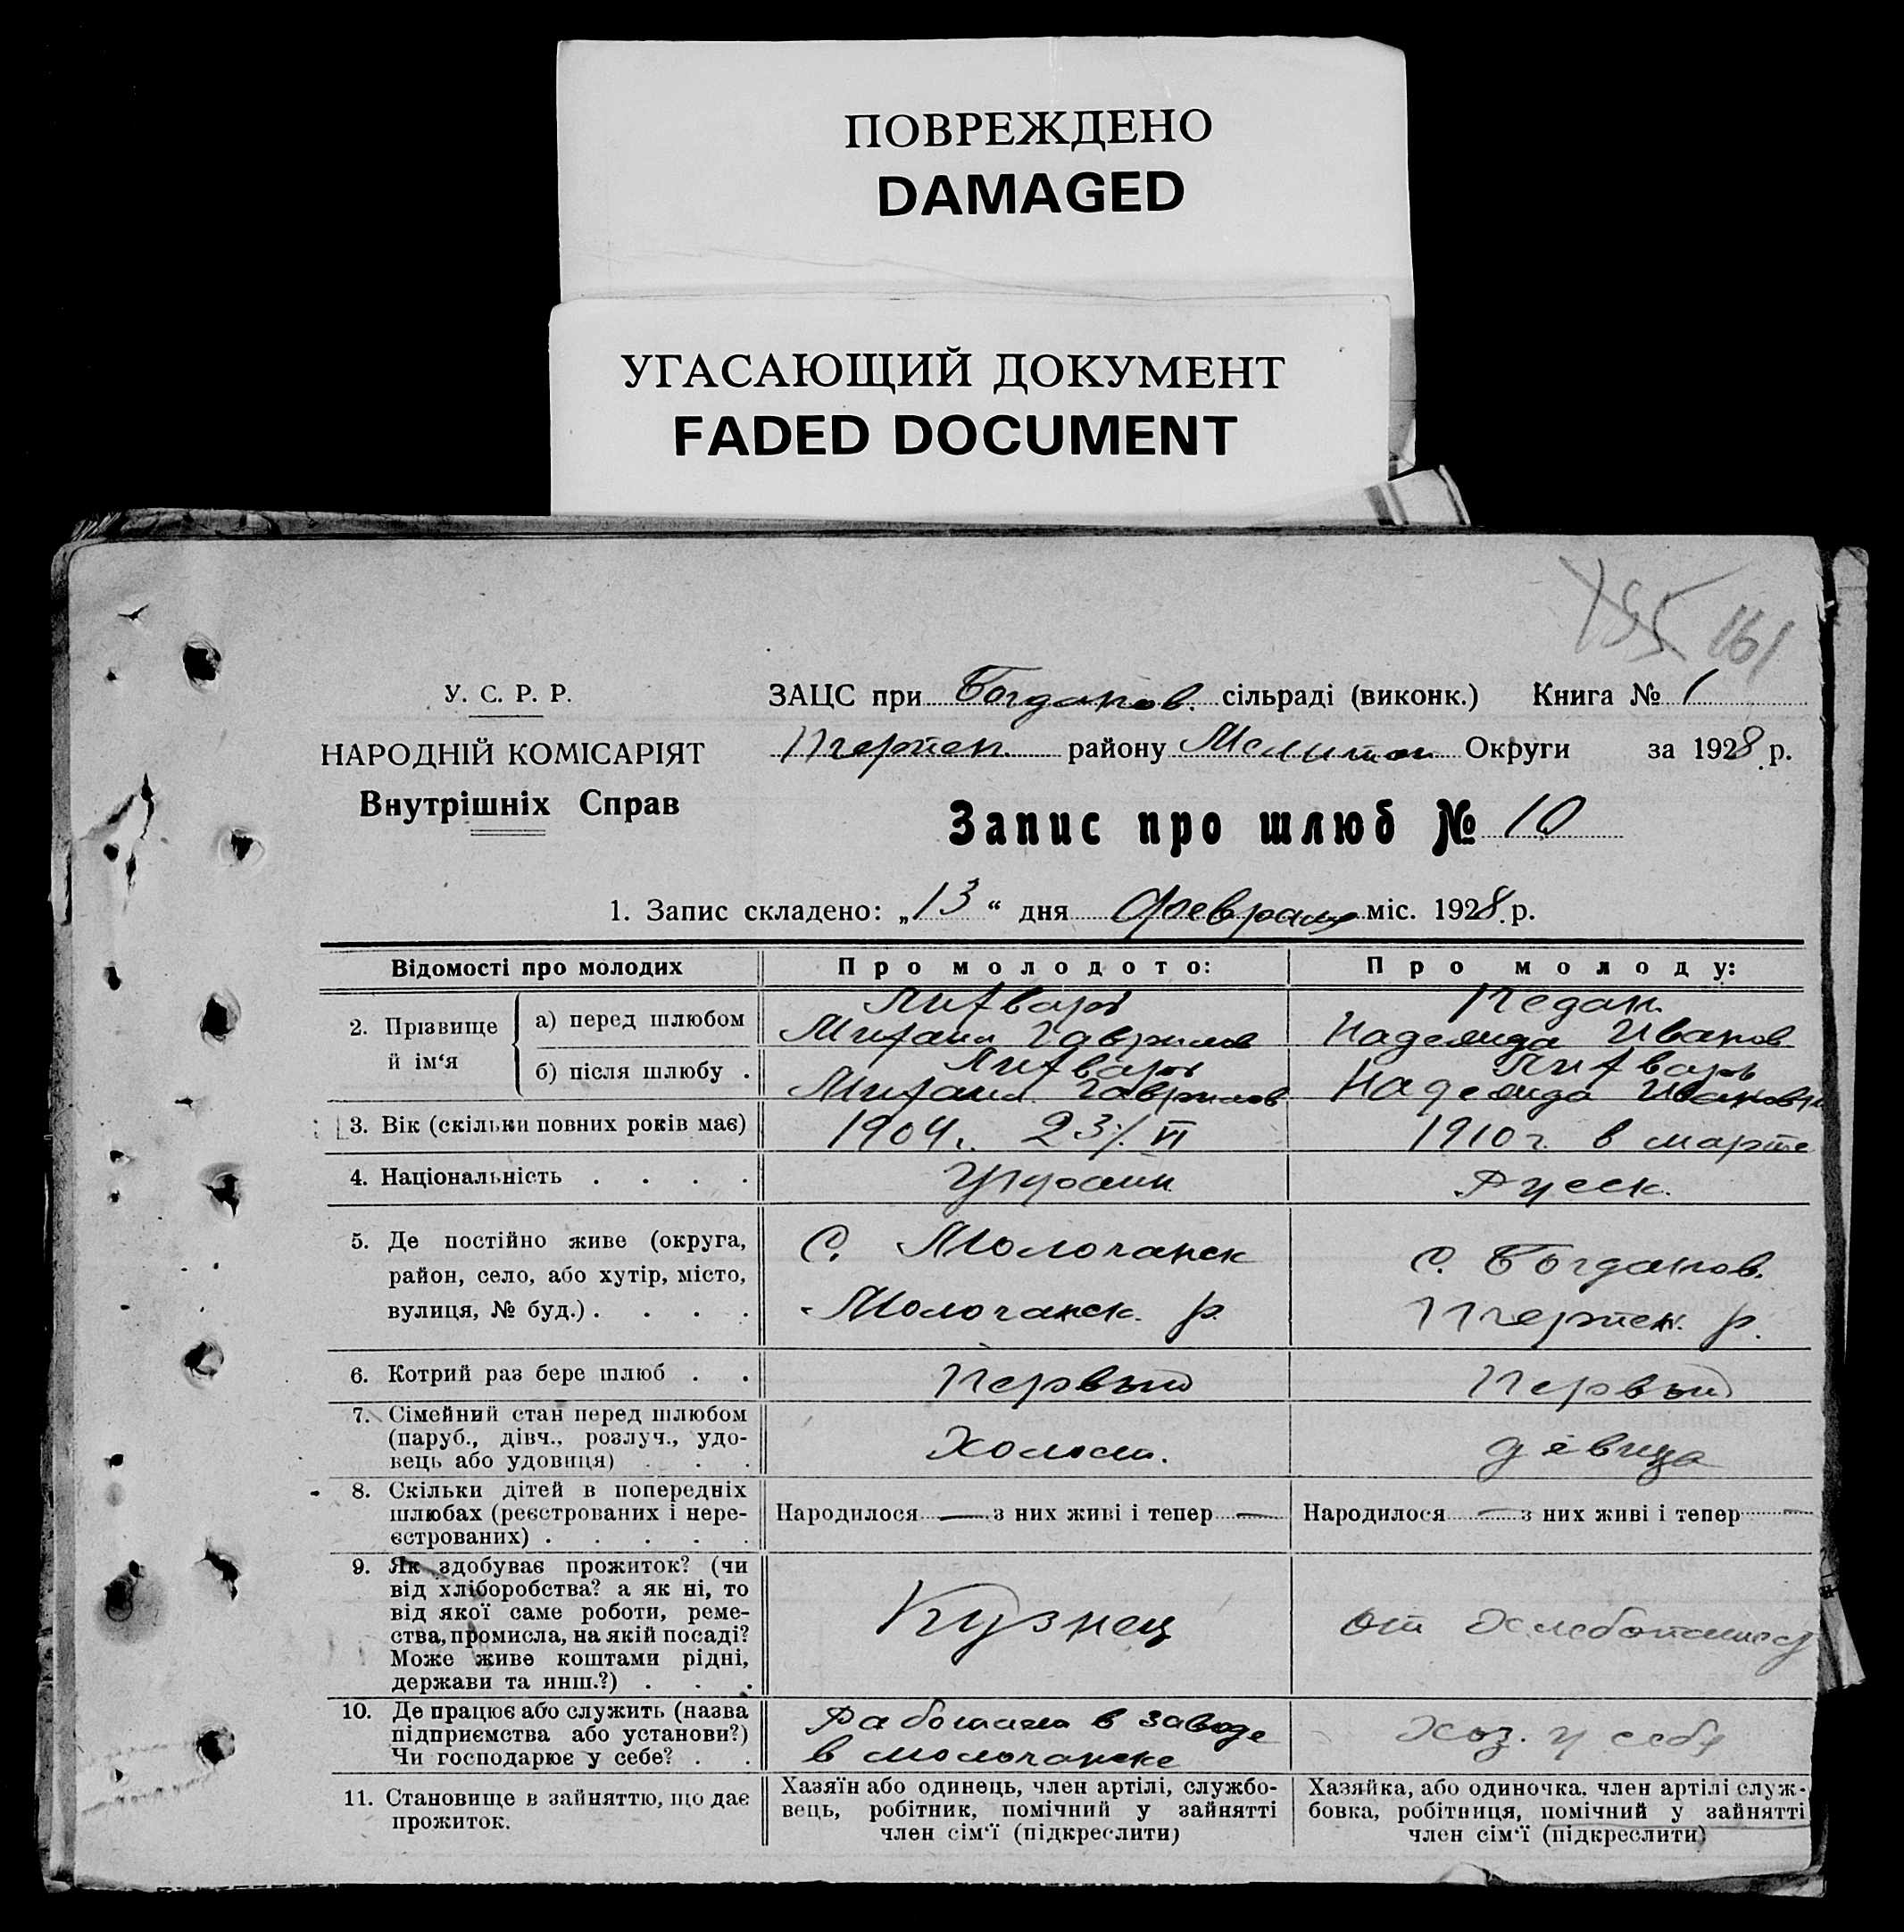 ПОВРЕЖДЕНО
DAMAGED
УГАСАЮЩИЙ ДОКУМЕНТ
FADED DOCUMENT
161
У. С. Р. Р.
НАРОДНІЙ КОМІСАРІЯТ
Внутрішніх Справ
ЗАЦС при Богданов. сільраді (виконк.) Книга № 1
району Мелитоп Округи за 1928 р.
Запис про шлюб № 10
1. Запис складено: „13“ дня февраля міс. 1928 р.
Відомості про молодих
Про молодого:
Про молоду:
2. Прізвище й ім‘я
а) перед шлюбом
Литварь
Михаил Гаврилов
Педан
Надежда Иванов
б) після шлюбу .
Литварь
Михаил Гаврилов
Литварь
Надежда Ивановн
3. Вік (скільки повних років має)
1904 г. 23/VI
1910 г. в марте
4. Національність . . . .
Украин
Русск.
5. Де постійно живе (округа,
район, село, або хутір, місто,
вулиця, № буд.) . . . .
С. Молочанск
Молочанск. р.
С. Богданов.
р.
6. Котрий раз бере шлюб . .
Первый
Первый
7. Сімейний стан перед шлюбом
(паруб., дівч., розлуч., удо-
вець або удовиця) . . .
Холост.
девица
8. Скільки дітей в попередніх
шлюбах (реєстрованих і нере-
єстрованих) . . . . .
Народилося — з них живі і тепер —
Народилося — з них живі і тепер —
9. Як здобуває прожиток? (чи
від хліборобства? а як ні, то
від якої саме роботи, реме-
ства, промисла, на якій посаді?
Може живе коштами рідні,
держави та инш.?) . . .
Кузнец
от
10. Де працює або служить (назва
підприємства або установи?)
Чи господарює у себе? . .
в заводе
в молочанске
Хоз. у себя
11. Становище в зайняттю, що дає
прожиток.
Хазяїн або одинець, член артілі, службо-
вець, робітник, помічний у зайнятті
член сім‘ї (підкреслити)
Хазяйка, або одиночка, член артілі служ-
бовка, робітниця, помічний у зайнятті
член сім‘ї (підкреслити)